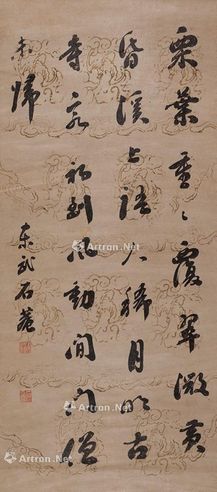 栗葉重〻覆翠微黄
昏溪上語人稀月明古
寺客初到風動閒門僧
未歸
東武石菴
Artron.Net
Artron.Net
Artron.Net
Artron.Net